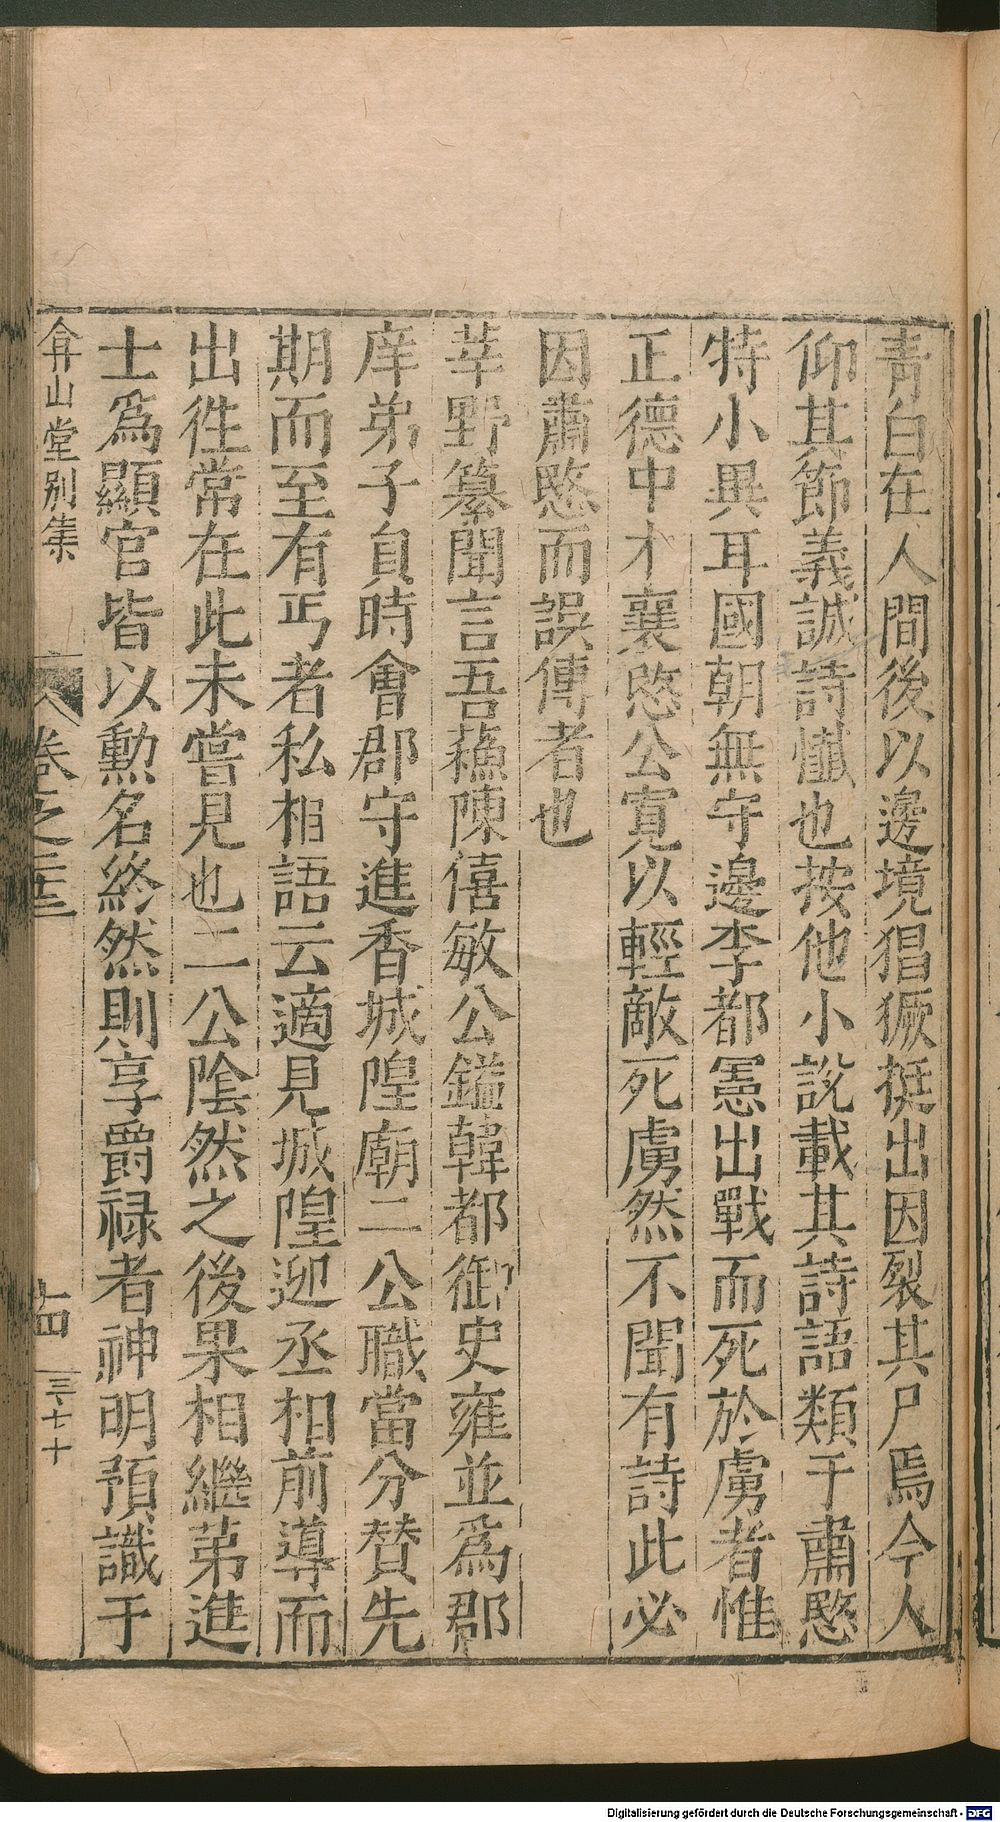 青白在人間後以邊境猖獗挺出因裂其尸焉今人
仰其節義誠詩懺也按他小說載其詩語類于肅愍
特小異耳國朝無守邊李都憲出戰而死於虜者惟
正德中才襄愍公寬以輕敵死虜然不聞有詩此必
因肅愍而誤傳者也
莘野纂聞言吾蘓陳僖敏公鎰韓都御史雍並為郡
庠弟子負時會郡守進香城隍廟二公職當分賛先
期而至有丐者私相語云適見城隍迎丞相前導而
出徃常在此未嘗見也二公陰然之後果相繼苐進
士為顯官皆以勳名終然則享爵祿者神明預識于
弇山堂別集
卷之二十三
十四
三七十
Digitalisierung gefördert durch die Deutsche Forschungsgemeinschaft - DFG